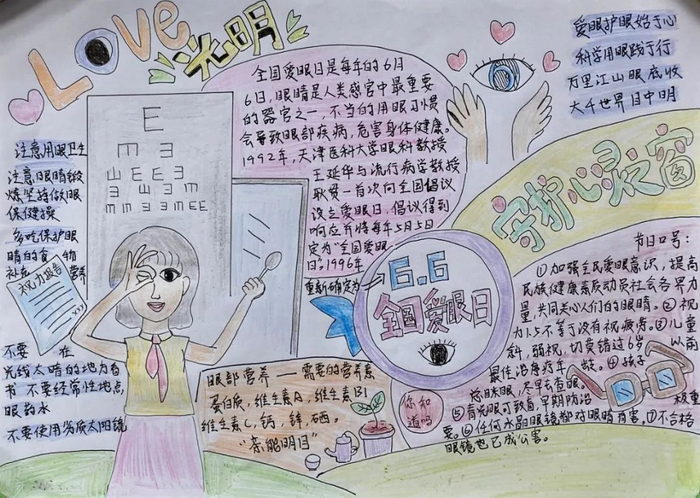 Love
光明
爱眼护眼始于心
科学用眼践于行
万里江山眼底收
大千世界目中明
全国爱眼日是每年的6月
6日,眼睛是人类感官中最重要
的器官之一,不当的用眼习惯
会导致眼部疾病,危害身体健康。
1992年,天津医科大学眼科教授
王延华与流行病学教授
耿贯一首次向全国倡议
设立爱眼日,倡议得到
响应并将每年5月5日
定为"全国爱眼
日"。1996年
重新确定为
6.6
全国爱眼日
E
m 3
W E E 3
3 W 3 m
m m 3 m E E
注意用眼卫生
注意眼睛锻
炼坚持做眼
保健操
多吃保护眼
睛的食物
补充 营养
视力报告
不要 在
光线太暗的地方看
书 不要经常性地点
眼药水
不要使用劣质太阳镜
眼部营养——需要的营养素
蛋白质,维生素A,维生素B1
维生素C,钙,锌,硒。
"亲能明目"
你知
道吗
守护心灵之窗
节日口号:
①加强全民爱眼意识,提高
民族健康素质动员社会各界力
量,共同关心人们的眼睛。②视
力1.5不等于没有视疲劳。③儿童
斜,弱视,切莫错过6岁以前
最佳治疗年龄。④孩子
眯眼,尽早去查眼
⑤青光眼可致盲,早期防治 极重
要。⑥任何水晶眼镜都对眼睛有害。⑦不合格
眼镜也已成公害。